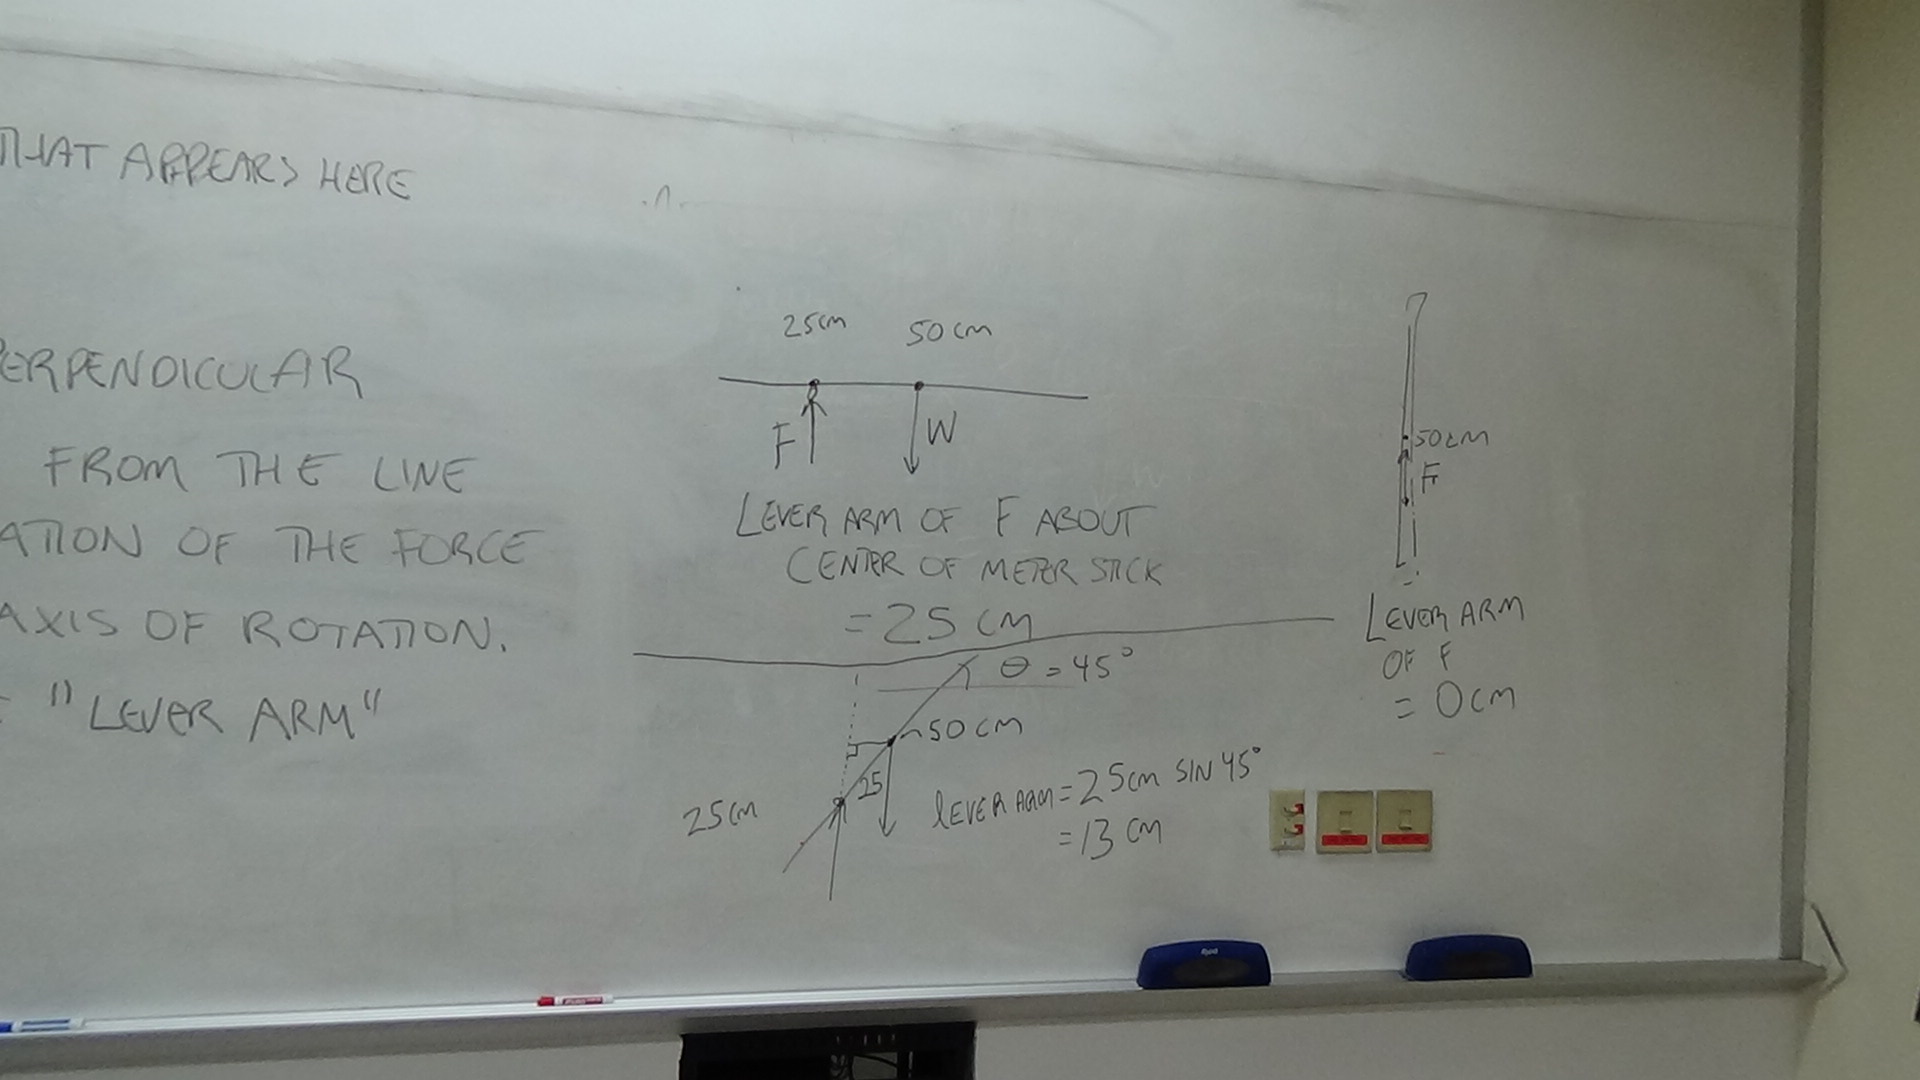 THAT APPEARS HERE
PERPENDICULAR
FROM THE LINE
ATION OF THE FORCE
AXIS OF ROTATION.
"LEVER ARM"
25cm 50cm
F W
LEVER ARM OF F ABOUT
CENTER OF METER STICK
= 25 CM
θ = 45°
50 CM
25
25cm
LEVER ARM = 25cm SIN 45°
= 13 CM
50cm
F
LEVER ARM
OF F
= 0CM